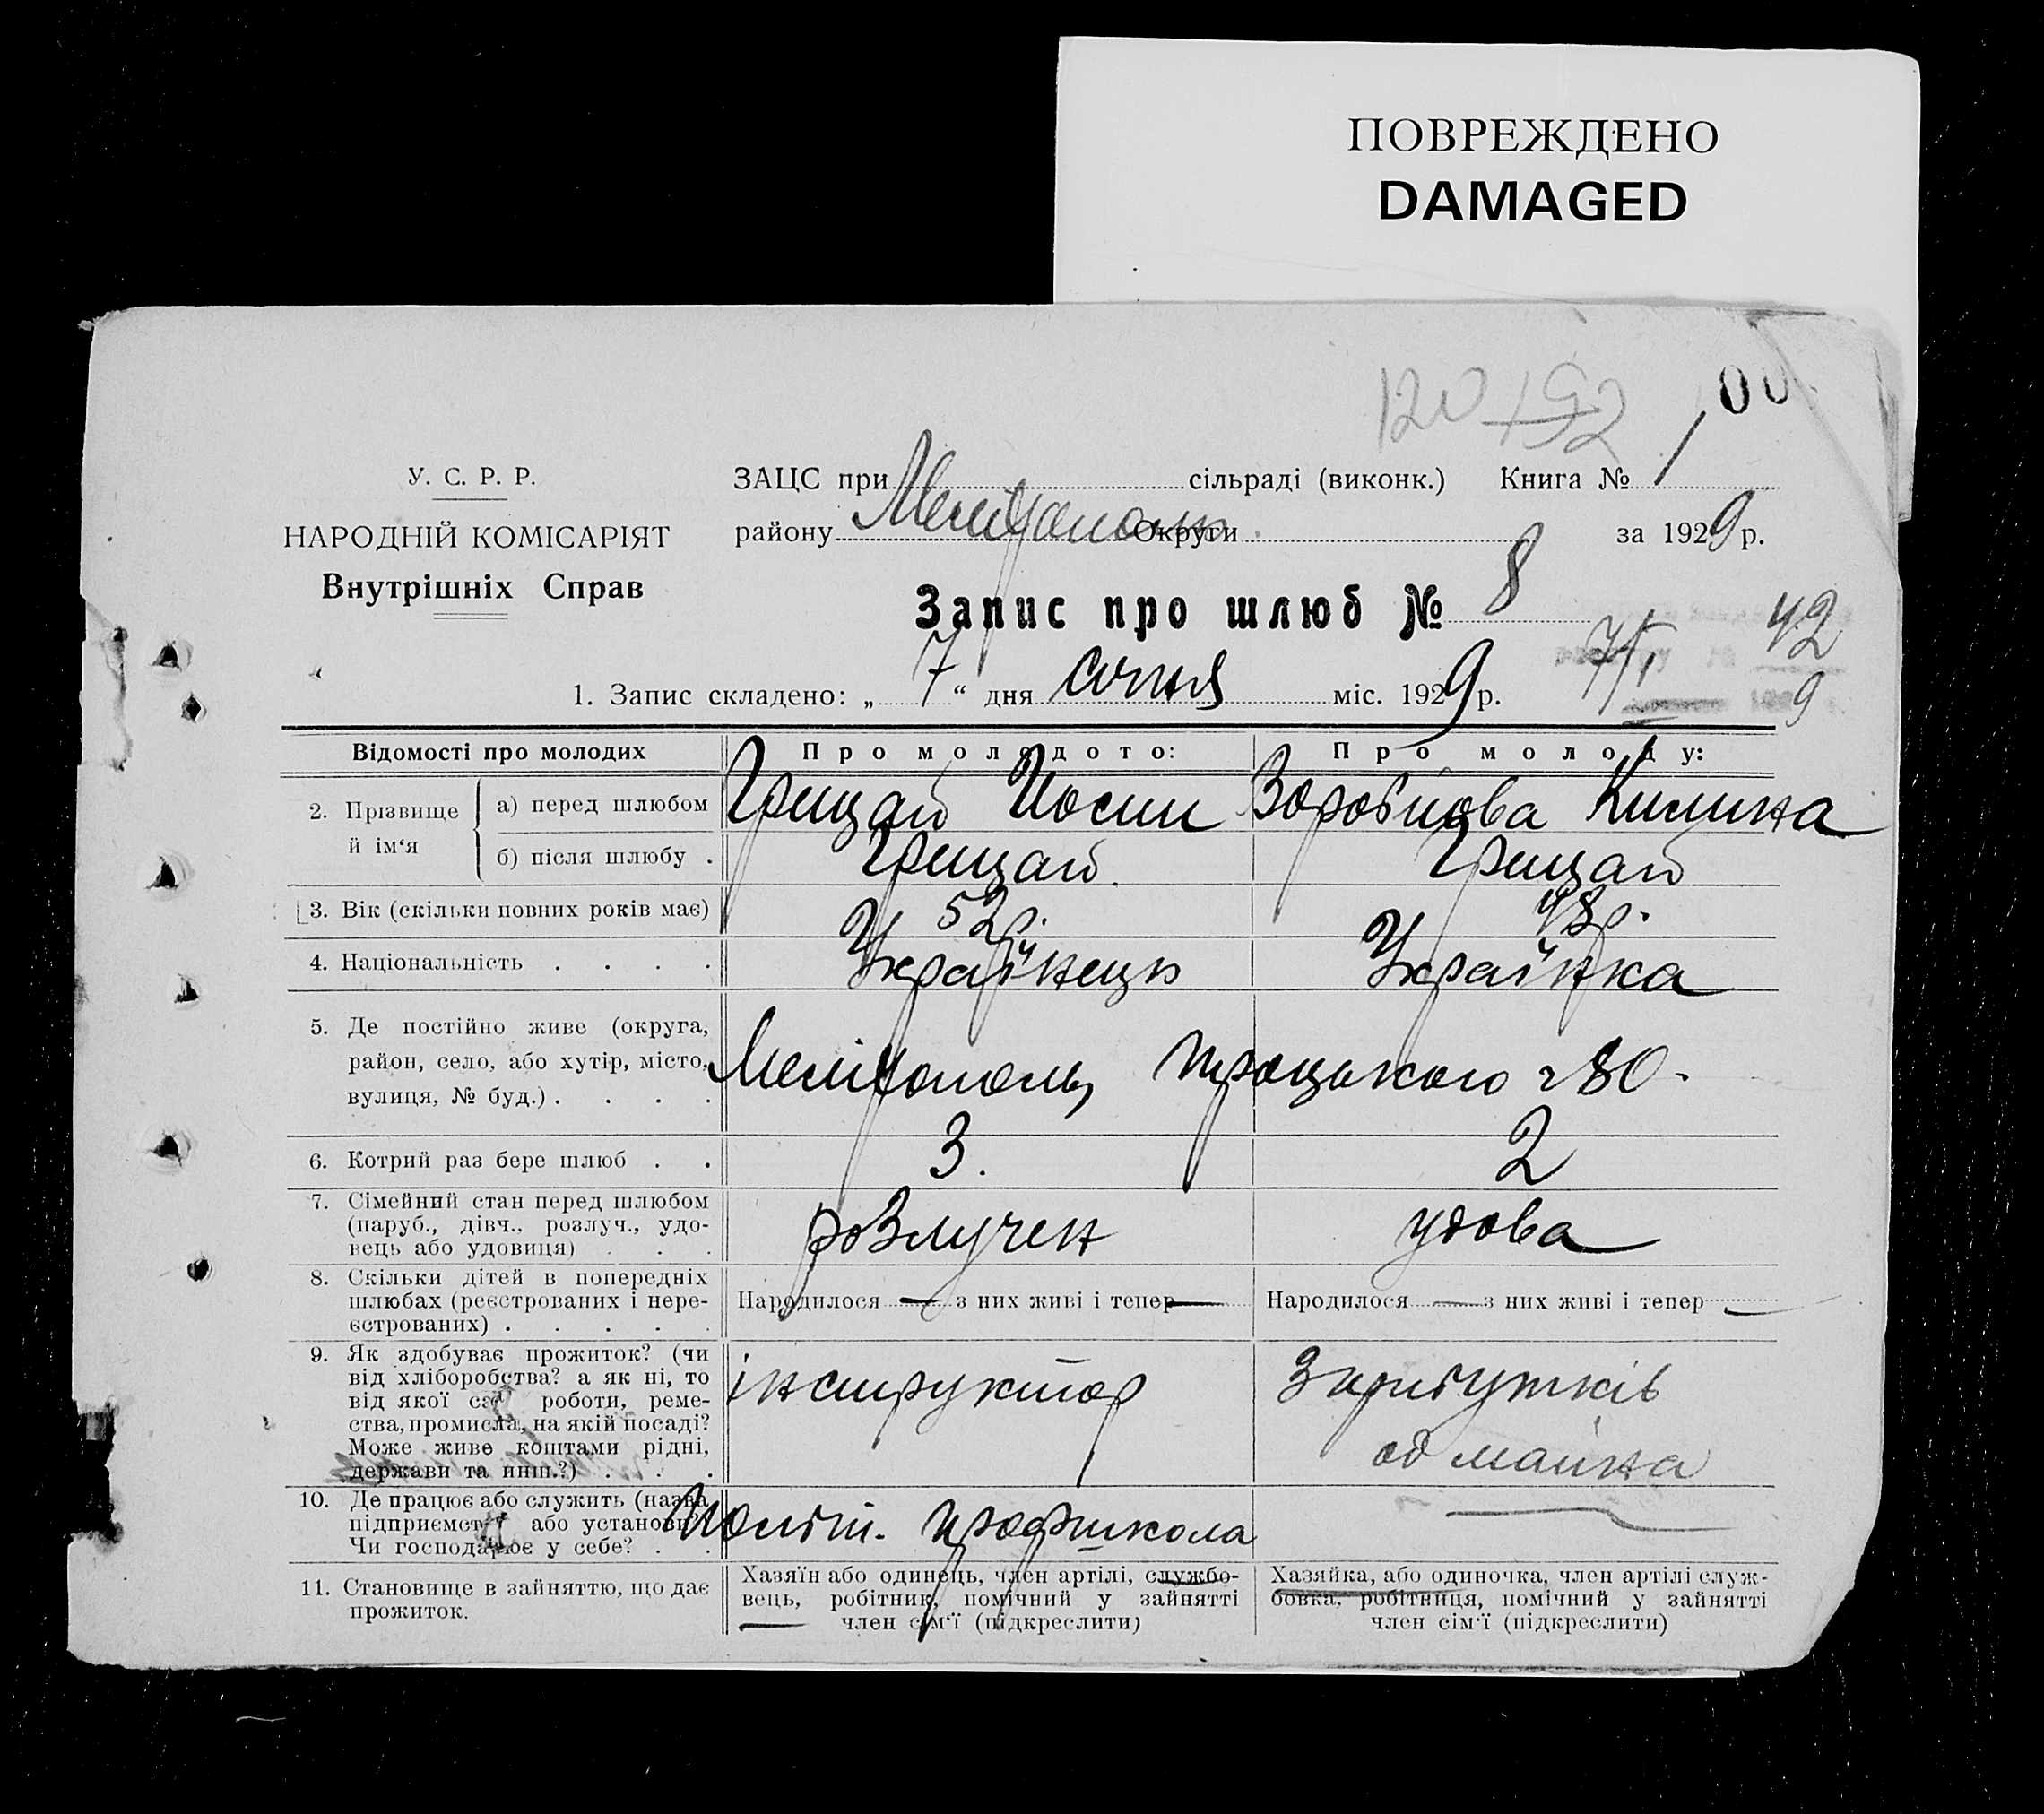 ПОВРЕЖДЕНО
DAMAGED
120 192
1 00
У. С. Р. Р.
НАРОДНІЙ КОМІСАРІЯТ
Внутрішніх Справ
ЗАЦС при сільраді (виконк.) Книга №
району Мелітополь Округи за 1929 р.
Запис про шлюб № 8
7/I 42
9
1. Запис складено: „ 7 “ дня січня міс. 1929 р.
Відомості про молодих Про молодого: Про молоду:
2. Прізвище й ім‘я а) перед шлюбом Грищай Йосип Воробйова Килина
б) після шлюбу . Грищай. Грищай
3. Вік (скільки повних років має) 52 р. 48 р.
4. Національність . . . . Українець Українка
5. Де постійно живе (округа,
район, село, або хутір, місто,
вулиця, № буд.) . . . . Мелітополь, Троцького 280.
6. Котрий раз бере шлюб . . 3. 2
7. Сімейний стан перед шлюбом
(паруб., дівч., розлуч., удо-
вець або удовиця) . . . розлучен удова
8. Скільки дітей в попередніх
шлюбах (реєстрованих і нере-
єстрованих) . . . . . Народилося — з них живі і тепер — Народилося — з них живі і тепер —
9. Як здобуває прожиток? (чи
від хліборобства? а як ні, то
від якої роботи, реме-
ства, промисла, на якій посаді?
Може живе коштами рідні,
держави та инш.?) . . . інструктор
од майна
10. Де працює або служить (назва
підприємст або установи?
Чи господарює у себе? . . Політ. профшкола —
11. Становище в зайняттю, що дає
прожиток.
Хазяїн або одинець, член артілі, службо-
вець, робітник, помічний у зайнятті
член сім‘ї (підкреслити)
Хазяйка, або одиночка, член артілі служ-
бовка, робітниця, помічний у зайнятті
член сім‘ї (підкреслити)